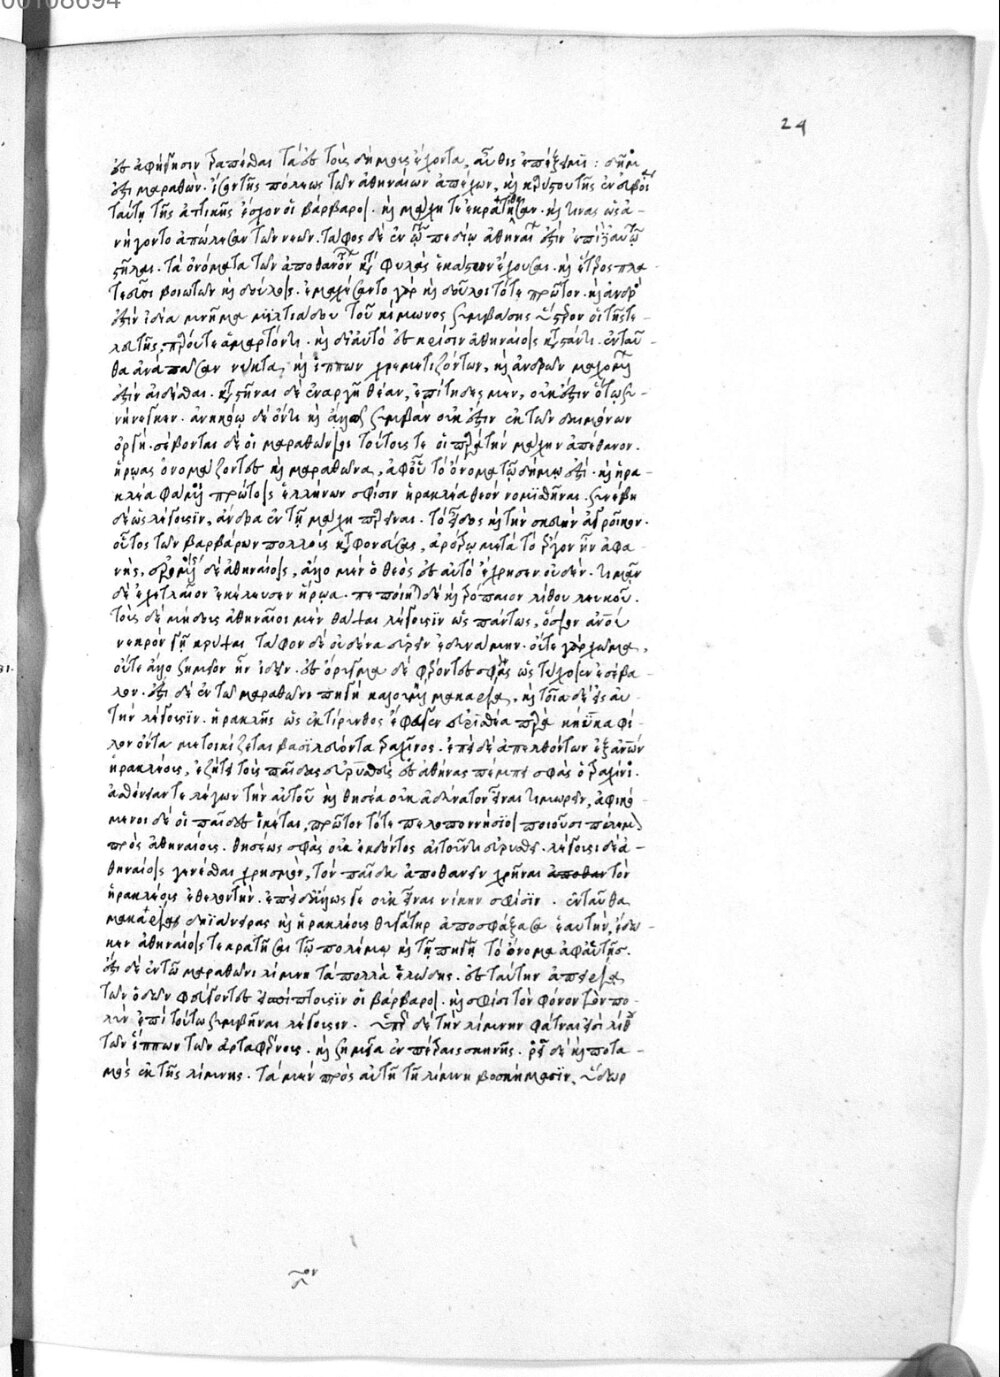 ἐς ἀφήγησιν τραπέσθαι τὰ ἐς τοὺς δήμους ἔχοντα, αὖθις ἐπέξειμι : δῆμός
ἐστι μαραθὼν. ἴσον τῆς πόλεως τῶν ἀθηναίων ἀπέχων, καὶ καρύστου τῆς ἐν εὐβοίᾳ
ταύτῃ τῆς ἀττικῆς ἔσχον οἱ βάρβαροι. καὶ μάχῃ τε ἐκρατήθησαν. καὶ τινας ὡς ἀ-
νήγοντο ἀπώλεσαν τῶν νεων. τάφος δὲ ἐν τῷ πεδίῳ ἀθηναίων ἐστὶν ἐπὶ δὲ αὐτῷ
στῆλαι. τὰ ὀνόματα τῶν ἀποθανόντων κατὰ φυλὰς ἑκάστων ἔχουσαι. καὶ ἕτερος πλα-
ταιεῦσι βοιωτῶν καὶ δούλοις. ἐμαχέσαντο γὰρ καὶ δοῦλοι τότε πρῶτον. καὶ ἀνδρός
ἐστὶν ἰδία μνῆμα μιλτιάδου τοῦ κίμωνος συμβάσης ὕστερον οἱ τῆς τε-
λευτῆς, πλούτε ἁμαρτόντι. καὶ δι' αὐτὸ ἐς κρίσιν ἀθηναίοις καταστάντι. ἐνταῦ-
θα ἀνὰ πᾶσαν νύκτα, καὶ ἵππων χρεμετιζόντων, καὶ ἀνδρῶν μαχομένων
ἐστὶν αἰσθέσθαι. καταστῆναι δὲ ἐναργῆ θέαν, ἐπίτηδες μὲν, οὐκ ἔστιν ὅτῳ συ-
νήνεγκεν. ἀνηκόῳ δὲ ὄντι καὶ ἄλλως συμβὰν οὐκ ἔστιν ἐκ τῶν δαιμόνων
ὀργή. σέβονται δὲ οἱ μαραθώνιοι τούτους τε οἱ παρὰ τὴν μάχην ἀπέθανον.
ἥρωας ὀνομάζοντες καὶ μαραθῶνα, ἀφ' οὗ τὸ ὄνομα τῷ δήμῳ ἐστί. καὶ ἡρα-
κλέα φαμένοι πρώτοις ἑλλήνων σφίσιν ἡρακλέα θεὸν νομισθῆναι. συνέβη
δὲ ὡς λέγουσιν, ἄνδρα ἐν τῇ μάχῃ παρεῖναι. τὸ εἶδος καὶ τὴν σκευὴν ἀγροῖκον.
οὗτος τῶν βαρβάρων πολλοὺς καταφονεύσας, ἀρότρῳ μετὰ τὸ ἔργον ἦν ἀφα-
νής, ἐρομένοις δὲ ἀθηναίοις, ἄλλο μὲν ὁ θεὸς ἐς αὐτὸ ἔχρησεν οὐδέν. τιμᾶν
δὲ ἐχετλαῖον ἐκέλευσεν ἥρωα. πεποίηται δὲ καὶ τρόπαιον λίθου λευκοῦ.
τοὺς δὲ μήδους ἀθηναῖοι μὲν θάψαι λέγουσιν ὡς πάντως, ὅσιον ἀνθρώπου
νεκρὸν γῆ κρύψαι. τάφον δὲ οὐδένα εὑρεῖν ἐδυνάμην. οὔτε γὰρ χῶμα,
οὔτε ἄλλο σημεῖον ἦν ἰδεῖν. ἐς ὄρυγμα δὲ φέροντες σφᾶς ὡς τύχοιεν ἐσέβα-
λον. ἔστι δὲ ἐν τῷ μαραθῶνι πηγὴ καλουμένη μακαρία. καὶ τοιάδε ἐς αὐ-
τὴν λέγουσιν. ἡρακλῆς ὡς ἐκ τίρυνθος ἔφευγεν εὐρυσθέα παρὰ κήϋκα φί-
λον ὄντα μετοικίζεται βασιλεύοντα τραχῖνος. ἐπεὶ δὲ ἀπελθόντων ἐξ ἀνθρώπων
ἡρακλέους, ἐξήτει τοὺς παῖδας εὐρυσθεὺς ἐς ἀθήνας πέμπει σφᾶς ὁ τραχίνιος.
ἀσθένειαν τε λέγων τὴν αὑτοῦ καὶ θησέα οὐκ ἀδύνατον εἶναι τιμωρεῖν, ἀφικό-
μενοι δὲ οἱ παῖδες ἱκέται, πρῶτον τότε πελοποννησίοις ποιοῦσι πόλεμον
πρὸς ἀθηναίους. θησέως σφᾶς οὐκ ἐκδόντος αἰτοῦντι εὐρυσθεῖ. λέγουσι δὲ ἀ-
θηναίοις γενέσθαι χρησμὸν, τὸν παῖδα ἀποθανεῖν χρῆναι ἀποθαν τὸν
ἡρακλέους ἐθελοντήν. ἐπεὶ δὲ ἄλλως γε οὐκ εἶναι νίκην σφίσιν. ἐνταῦθα
μακαρίας δηϊανείρας καὶ ἡρακλέους θυγάτηρ ἀποσφάξασα ἑαυτήν, ἔδω-
κεν ἀθηναίοις τε κρατῆσαι τῷ πολέμῳ καὶ τῇ πηγῇ τὸ ὄνομα ἀφ' αὑτῆς.
ἔστι δὲ ἐν τῷ μαραθῶνι λίμνη τὰ πολλὰ ἑλώδης. ἐς ταύτην ἀπειρία
τῶν ὁδῶν φεύγοντες ἐσπίπτουσιν οἱ βάρβαροι. καὶ σφίσι τὸν φόνον τὸν πο-
λὺν ἐπὶ τούτῳ συμβῆναι λέγουσιν. ὑπὲρ δὲ τὴν λίμνην φάτναι εἰσὶ λίθου
τῶν ἵππων τῶν ἀρταφέρνους. καὶ σημεῖα ἐν πέτραις σκηνῆς. ῥεῖ δὲ καὶ ποτα-
μὸς ἐκ τῆς λίμνης. τὰ μὲν πρὸς αὐτῇ τῇ λίμνῃ βοσκήμασιν, ὕδωρ